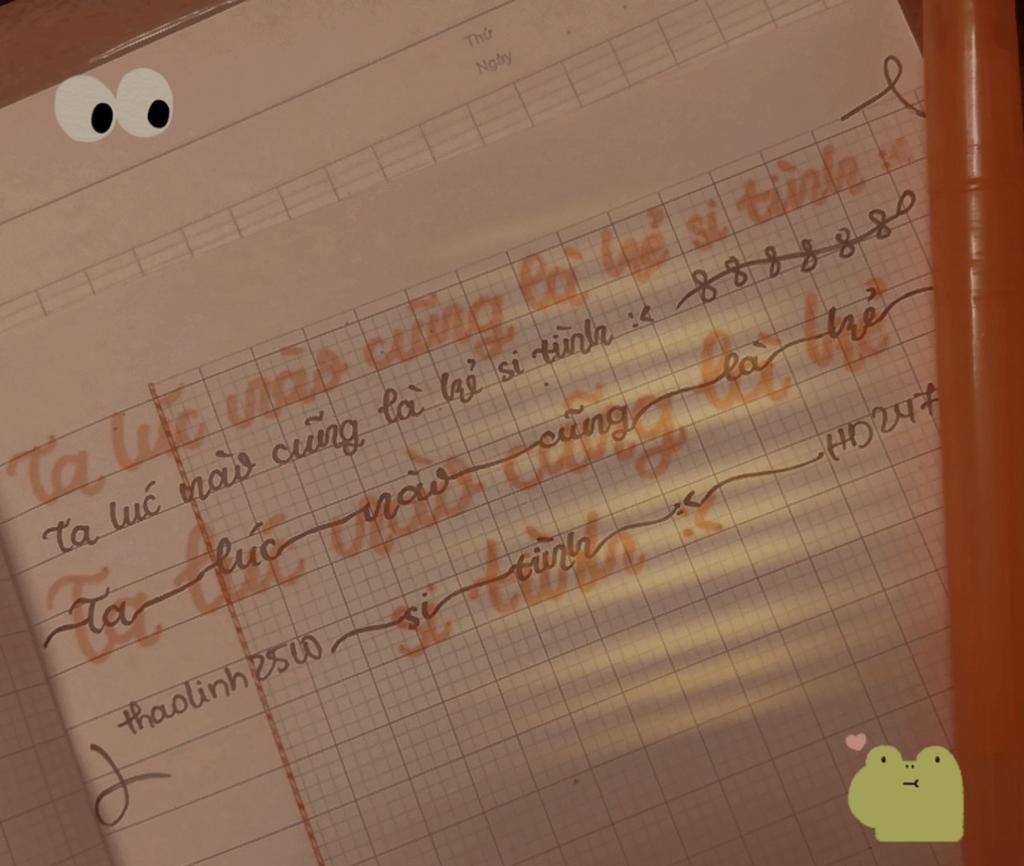 Thứ
Ngày
Ta lúc nào cũng là kẻ si tình :<
Ta lúc nào cũng là kẻ si tình :< 888888
Ta lúc nào cũng là kẻ
Ta lúc nào cũng là kẻ
si tình :<
thaolinh2510 si tình :< HD247